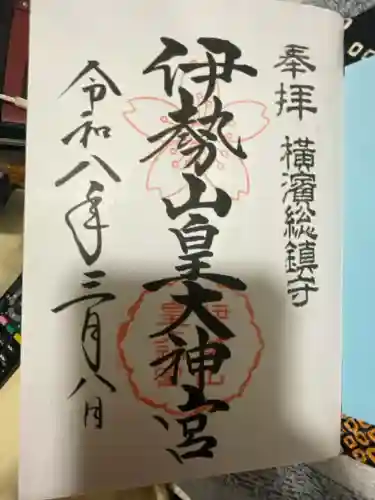 奉拝 横濱総鎮守
伊勢山皇大神宮
令和八年三月八日